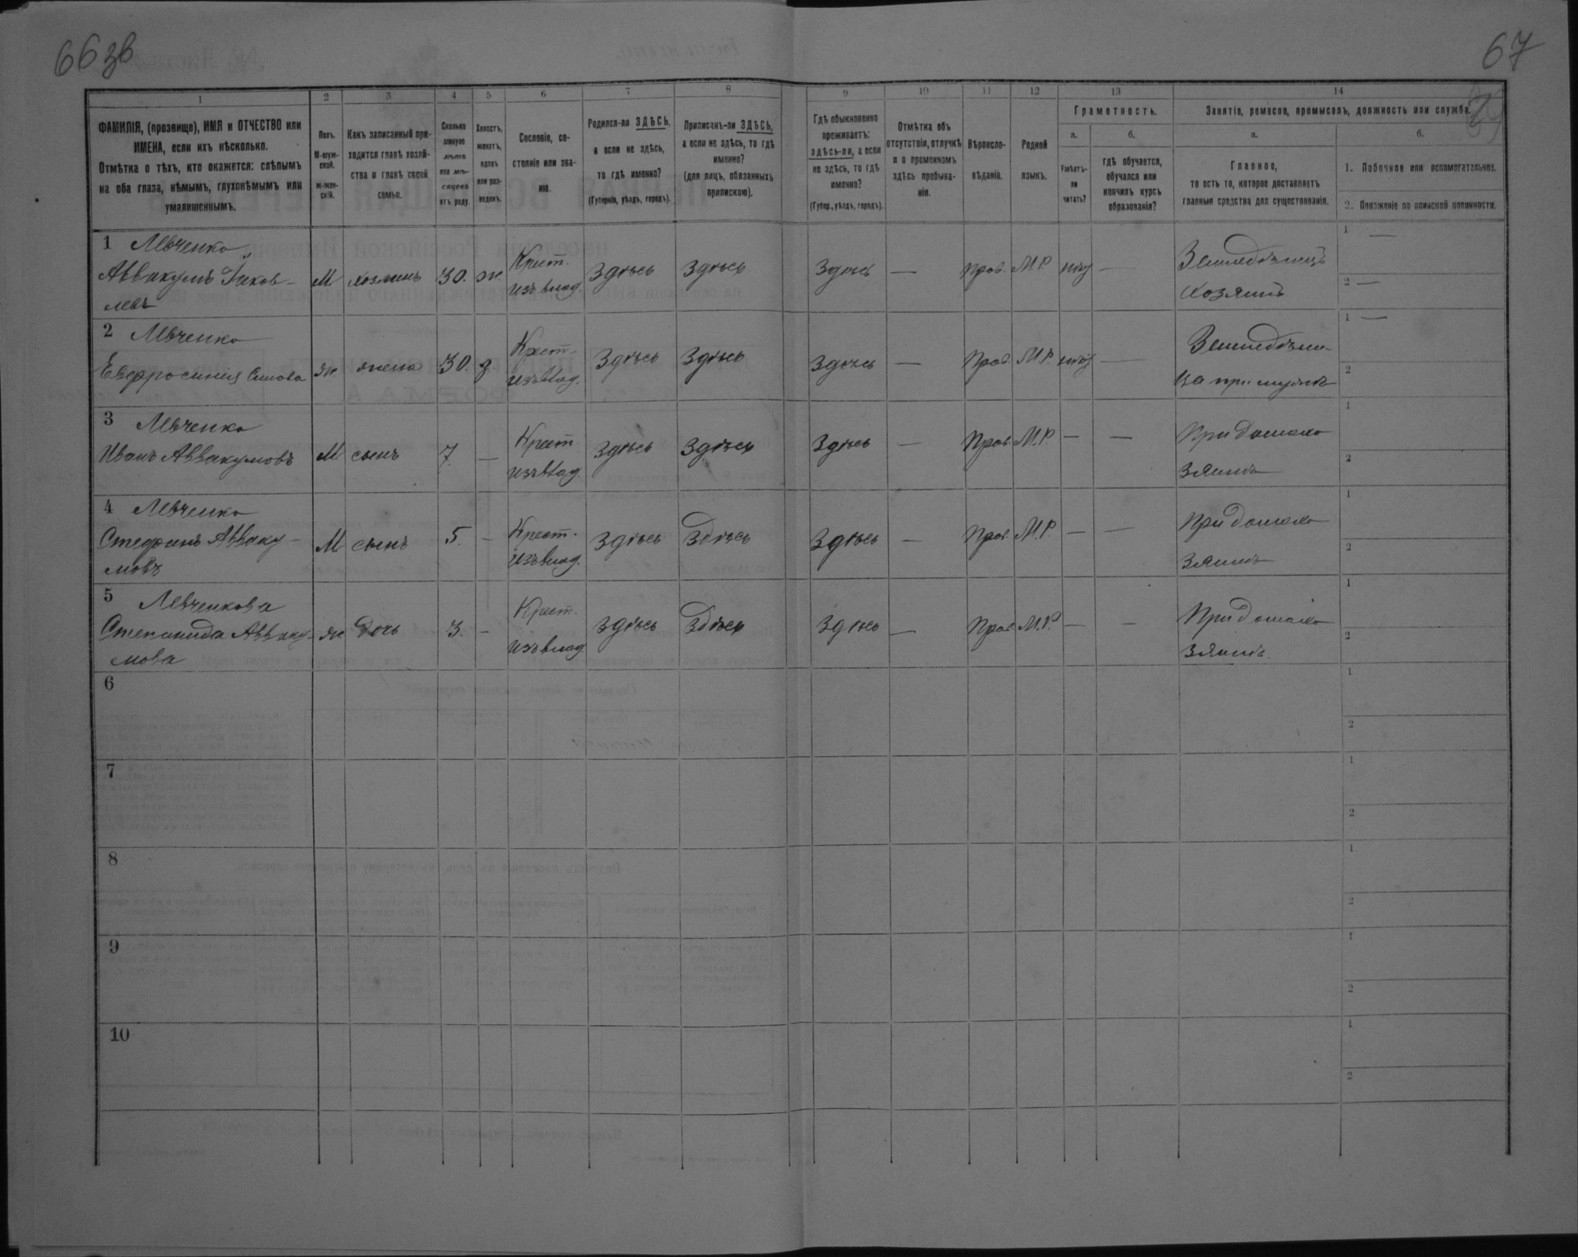 66 зв
67
1 2 3 4 5 6 7 8 9 10 11 12 13 14
ФАМИЛІЯ, (прозвище), ИМЯ и ОТЧЕСТВО или
ИМЕНА, если ихъ нѣсколько.
Отмѣтка о тѣхъ, кто окажется: слѣпымъ
на оба глаза, нѣмымъ, глухонѣмымъ или
умалишеннымъ.
Полъ.
М-муж-
ской.
ж-жен-
скій.
Какъ записанный при-
ходится главѣ хозяй-
ства и главѣ своей
семьи.
Сколько
минуло
лѣтъ
или мѣ-
сяцевъ
отъ роду.
Холостъ,
женатъ,
вдовъ
или раз-
веденъ.
Сословіе, со-
стояніе или зва-
ніе.
Родился-ли ЗДѢСЬ,
а если не здѣсь,
то гдѣ именно?
(Губернія, уѣздъ, городъ).
Приписанъ-ли ЗДѢСЬ,
а если не здѣсь, то гдѣ
именно?
(для лицъ, обязанныхъ
припискою).
Гдѣ обыкновенно
проживаетъ:
здѣсь-ли, а если
не здѣсь, то гдѣ
именно?
(Губер., уѣздъ, городъ).
Отмѣтка объ
отсутствіи, отлучкѣ
и о временномъ
здѣсь пребыва-
ніи.
Вѣроиспо-
вѣданіе.
Родной
языкъ.
Грамотность.
а.
Умѣетъ-
ли
читать?
б.
гдѣ обучается,
обучался или
кончилъ курсъ
образованія?
Занятіе, ремесло, промыселъ, должность или служба.
а.
Главное,
то есть то, которое доставляетъ
главныя средства для существованія.
б.
1. Побочное или вспомогательное.
2. Положеніе по воинской повинности.
1 Левченко
Аввакумъ Яков-
левъ
М хозяинъ 30. ж Крест. изъ влад. Здѣсь Здѣсь Здѣсь — Прав. М.Р. нѣт — Земледѣлецъ хозяинъ
1 —
2 —
2 Левченко
Евфросинія
ж жена 30. з Крест. изъ влад. Здѣсь Здѣсь Здѣсь — Прав. М.Р. нѣт — Земледѣли-
ца при мужѣ
1 —
2
3 Левченко
Иванъ Аввакумовъ
М сынъ 7. — Крест изъ влад. Здѣсь Здѣсь Здѣсь — Прав. М.Р. — — При домохо
зяинѣ
1
2
4 Левченко
Стефанъ Авваку-
мовъ
М сынъ 5. — Крест. изъ влад. Здѣсь Здѣсь Здѣсь — Прав. М.Р. — — При домохо
зяинѣ
1
2
5 Левченкова
Степанида Авваку-
мова
ж дочь 3. — Крест. изъ влад Здѣсь Здѣсь Здѣсь — Прав. М.Р. — — При домохо
зяинѣ.
1
2
6
1
2
7
1
2
8
1
2
9
1
2
10
1
2